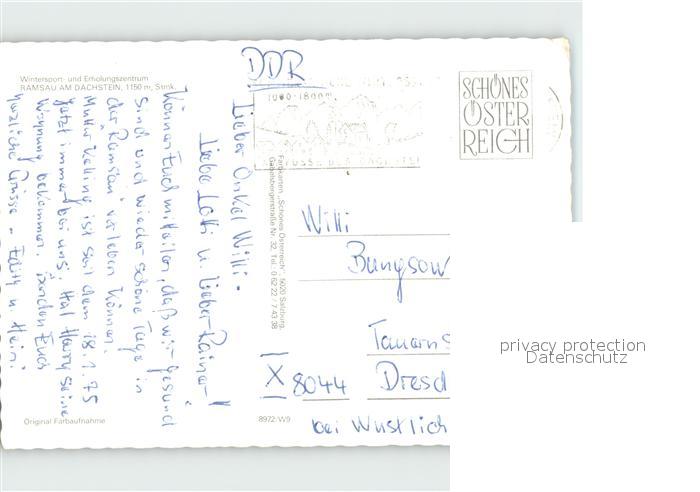 DDR
Wintersport- und Erholungszentrum
RAMSAU AM DACHSTEIN, 1150 m, Stmk.
1000-1800m
SCHÖNES
ÖSTER
REICH
Lieber Onkel Willi -
Liebe Lotti u. lieber Rainer!
Können Euch mitteilen, daß wir gesund
sind und wieder schöne Tage in
der "Ramsau" verleben können.
Mutter Kelling ist seit dem 18.1.75
jetzt immer bei uns. Hat Harry seine
Wohnung bekommen. Senden Euch
herzliche Grüsse - Edith u. Heini
Farbkarten "Schönes Österreich", 5020 Salzburg,
Gabelsbergerstraße Nr. 32, Tel. 0 62 22 / 7 43 38
Willi
Bungsow
Tauerns
X 8044 Dresd
bei Wustlich
Original Farbaufnahme
8972/W9
privacy protection
Datenschutz